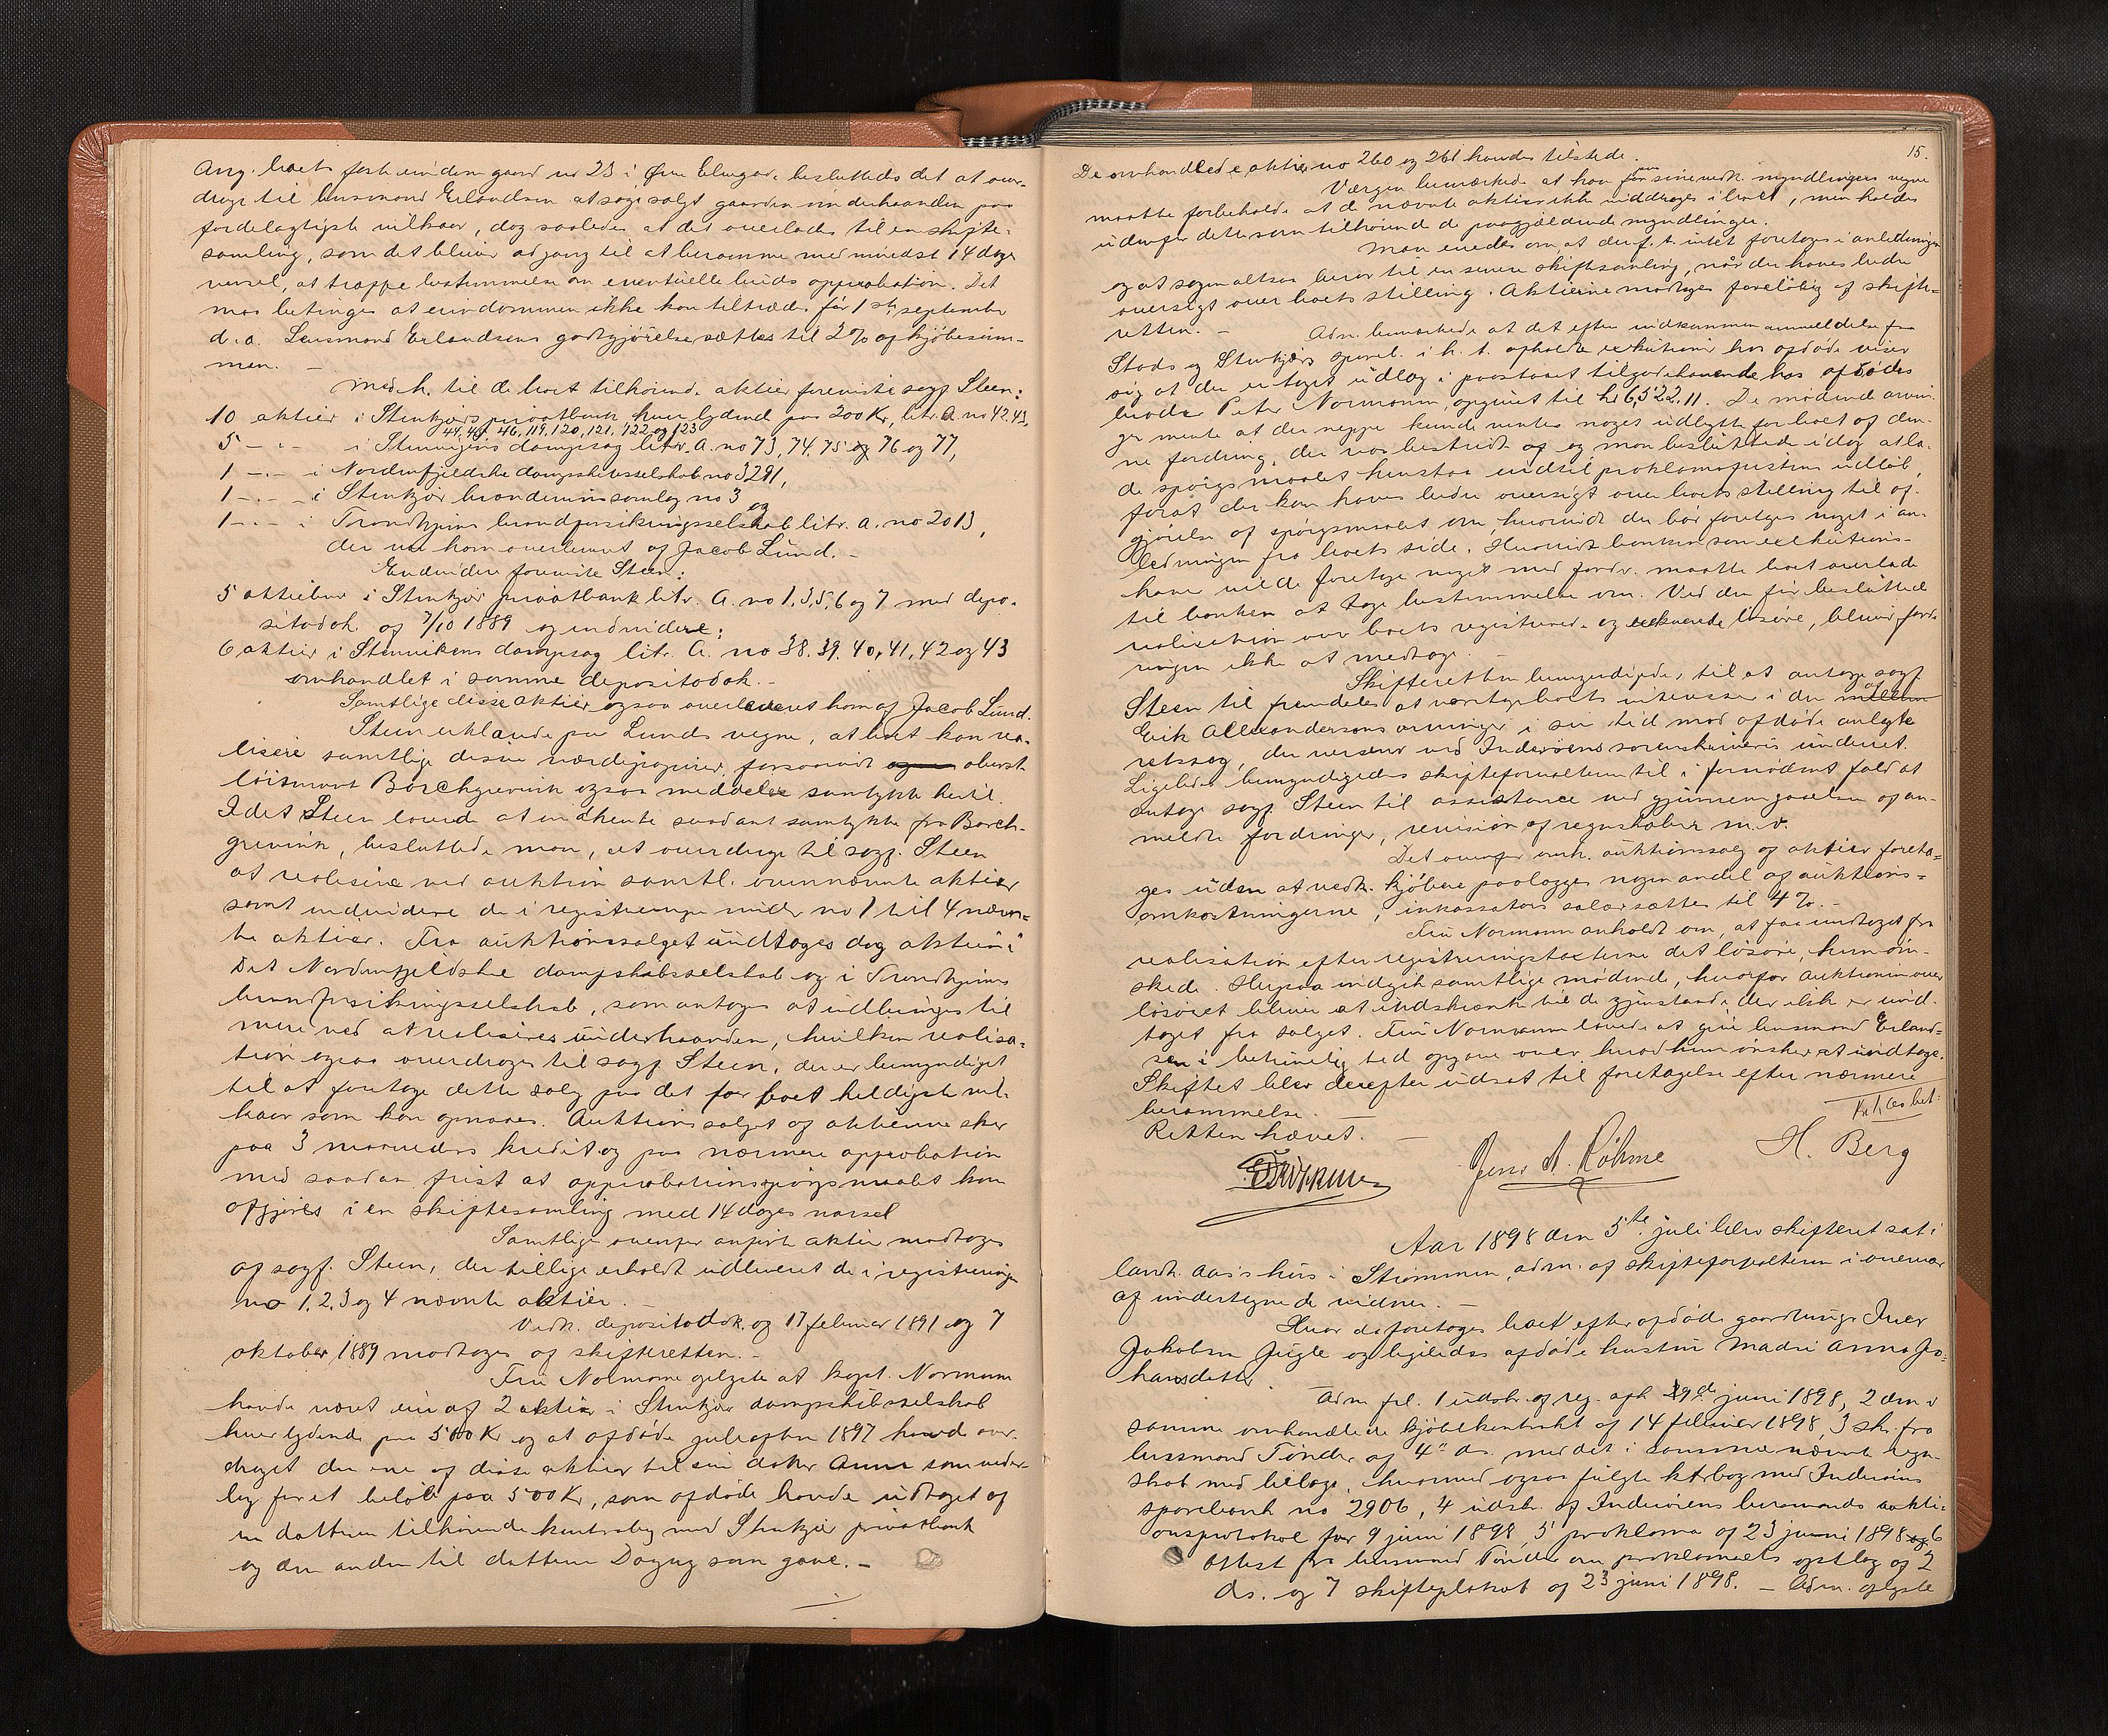 Ang. boets faste eiendom gaard no 23 i Øvre Elvegade besluttedes det at over-
drage til lensmand Erlandsen at søge solgt gaarden underhaanden paa
fordelagtigste vilkaar, dog saaledes at det overlades til en skifte-
samling, som det bliver adgang til at beramme med mindst 14 dage
varsel, at træffe bestemmelse om eventuelle buds approbation. Det
maa betinges at eiendommen ikke kan tiltrædes før 1ste september
d. a. Lensmand Erlandsens godtgjørelse sættes til 2% af kjøbesum-
men. –
Med h. til de boet tilhørende aktier foreviste sagf. Steen:
10 aktier i Stenkjærs privatbank hver lydende paa 200 Kr, litr. A. no 42. 43,
44, 45, 46, 119, 120, 121, 122 og 123
5 – " – i dampsag litr. A. no 73, 74, 75 og 76 og 77,
1 – " – i Nordenfjeldske dampskibsselskab no 3291,
1 – " – i Stenkjær brænderisamlag no 3 og
1 – " – i Trondhjems brandforsikringsselskab litr. A. no 2013,
der var ham overleveret af Jacob Lund. –
Endvidere foreviste Steen:
5 aktiebrev i Stenkjær privatbank litr. A. no 1, 3, 5, 6 og 7 med depo-
sitodok. af 7/10 1889 og endvidere:
6 aktier i dampsag litr. A. no 38. 39. 40, 41, 42 og 43
omhandlet i samme depositodok. –
Samtlige disse aktier ogsaa overleveret ham af Jacob Lund.
Steen erklærede paa Lunds vegne, at boet kan rea-
lisere samtlige disse værdipapirer, forsaavidt oberst-
løitnant Borchgrevink ogsaa meddeler samtykke hertil.
Idet Steen lovede at indhente saadant samtykke fra Borch-
grevink, besluttede man, at overdrage til sagf. Steen
at realisere ved auktion samtl. ovennævnte aktier
samt endvidere de i registreringen under no 1 til 4 nævn-
te aktier. Fra auktionssalget undtages dog aktierne i
Det Nordenfjeldske dampskibsselskab og i Trondhjems
brandforsikringsselskab, som antages at udbringes til
mere ved at realiseres underhaanden, hvilken realisa-
tion ogsaa overdrages til sagf. Steen, der er bemyndiget
til at foretage dette salg paa det for boet heldigste vil-
kaar som kan opnaaes. Auktionssalget af aktierne sker
paa 3 maaneders kredit og paa nærmere approbation
med saadan frist at approbationsspørgsmaalet kan
afgjøres i en skiftesamling med 14 dages varsel
Samtlige ovenfor anførte aktier modtoges
af sagf. Steen, der tillige erholdt udleveret de i registreringen
no 1, 2, 3 og 4 nævnte aktier. –
Vedk. depositodok. af 17 februar 1891 og 7
oktober 1889 modtoges af skifteretten. –
Fru Normann oplyste at kapt. Normann
havde været eier af 2 aktier i Stenkjær dampskibsselskab
hver lydende paa 500 Kr og at afdøde juleaften 1897 havde over-
draget den ene af disse aktier til sin datter Anna som veder-
lag for et beløb paa 500 Kr, som afdøde havde udtaget af
en datteren tilhørende kontrabog med Stenkjær privatbank
og den anden til datteren Dagny som gave. –
15.
De omhandlede aktier no 260 og 261 havdes tilstede.
Værgen bemærkede at han paa sine vedk. myndlingers vegne
maatte forbeholde at de nævnte aktier ikke inddrages i boet, men holdes
udenfor dette som tilhørende de paagjældende myndlinger.
Man enedes om at der f. t. intet foretages i anledningen
og at sagen altsaa beror til en senere skiftesamling, når der haves bedre
oversigt over boets stilling. Aktierne modtages foreløbig af skifte-
retten. –
Adm. bemærkede at det efter indkommen anmeldelse fra
Stods og Stenkjærs spareb. i h. t. afholdt exekution hos afdøde viser
sig at der er taget udlæg i paastaaet tilgodehavende hos afdødes
broder Peter Normann, opgivet til kr 6,522.11. De mødende arvin-
ger mente at der neppe kunde ventes noget udbytte for boet af den-
ne fordring, der var bestridt og man besluttede idag at la-
de spørgsmaalet henstaa indtil proklamafristens udløb,
forat der kan haves bedre oversigt over boets stilling til af-
gjørelse af spørgsmaalet om hvorvidt der bør foretages noget i an-
ledningen fra boets side. Hvorvidt banken som exekutions-
haver vilde foretage noget med fordr. maatte boet overlade
til banken at tage bestemmelse om. Ved den før besluttede
realisation over boets registrerede og løsøre, bliver ford-
ringen ikke at medtage. –
Skifteretten bemyndigedes til at antage sagf.
Steen til fremdeles at varetage boets interesser i den af
Erik Allexandersons arvinger i sin tid mod afdøde anlagte
retssag, der verserer ved Inderøens sorenskriveris underret.
Ligeledes bemyndigedes skifteforvalteren til i fornødent fald at
antage sagf. Steen til assistance ved gjennemgaaelsen af an-
meldte fordringer, revision af regnskaber m. v.
Det ovenfor omh. auktionssalg af aktier foreta-
ges uden at vedk. kjøbere paalægges nogen andel af auktions-
omkostningerne, inkassators salær sættes til 4%. –
Fru Normann anholdt om, at faa undtaget fra
realisation efter registreringstaxterne det løsøre, hun øn-
skede. Herpaa indgik samtlige mødende, hvorfor auktionen over
løsøret bliver at indskrænke til de gjenstande der ikke er und-
taget fra salget. Fru Normann lovede at give lensmand Erland-
sen i betimelig tid opgave over, hvad hun ønsker at undtage.
Skiftet blev derefter udsat til foretagelse efter nærmere
berammelse. –
Retten hævet. –
Jens A. Röhme
H. Berg
Aar 1898 den 5te juli blev skifteret sat i
landh. Aas's hus i Strømmen, adm. af skifteforvalteren i overvær
af undertegnede vidner. –
Hvor da foretoges boet efter afdøde gaardbruger Iver
Jakobsen Jugle og ligeledes afdøde hustru Madri Anna Jo-
hansdatter.
Adm. frl. 1 udskr. af reg. afh. 29de juni 1898, 2 den i
samme omhandlede kjøbekontrakt af 14 februar 1898, 3 skr. fra
lensmand Tønder af 4" ds. med det i samme nævnte regn-
skab med bilage, hvormed ogsaa fulgte ktrbog med Inderøens
sparebank no 2906, 4 udskr. af Inderøens lensmands aukti-
onsprotokol for 9 juni 1898, 5 proklama af 23 juni 1898 og 6
Attest fra lensmand Tønder om proklamaets opslag af 2
ds. og 7 skifteplakat af 23 juni 1898. – Adm. oplyste